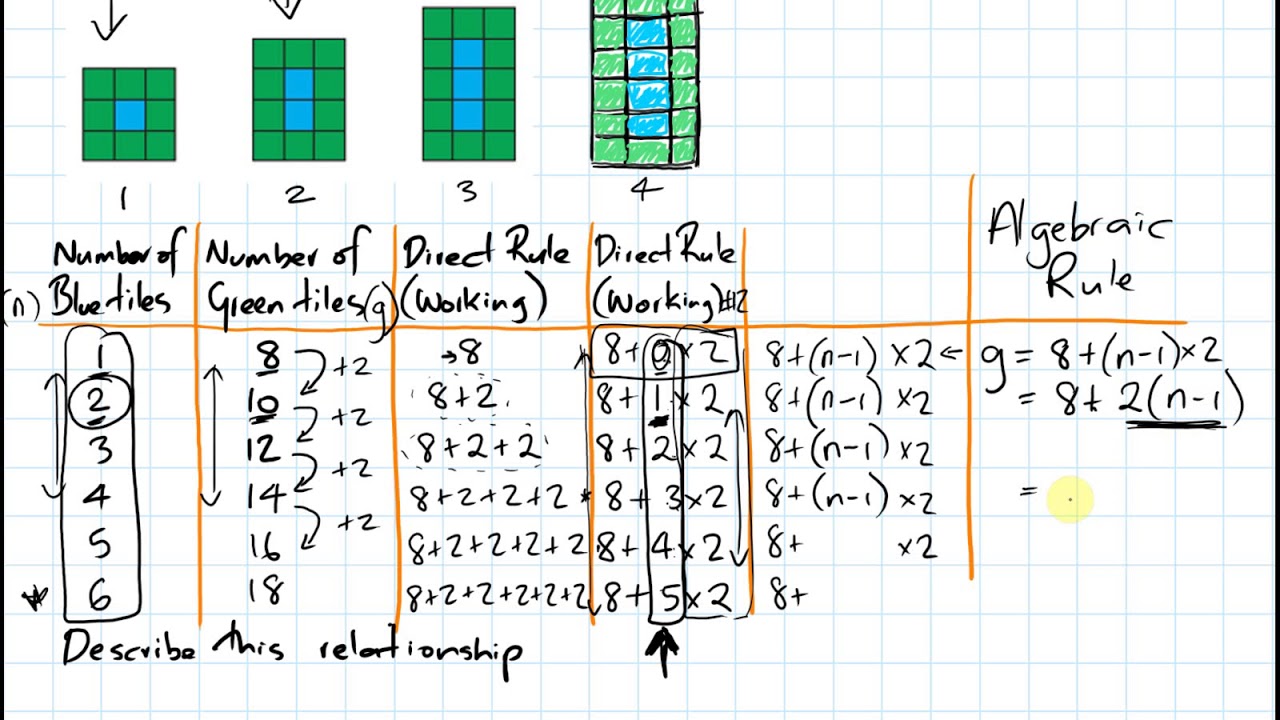 1 2 3 4
Number of Number of Direct Rule Direct Rule Algebraic
(n) Blue tiles Green tiles (g) (Working) (Working) #2 Rule
1 8 +2 →8 8+0×2 8+(n-1) ×2 ← g = 8+(n-1)×2
2 10 +2 8+2 8+1×2 8+(n-1) ×2 = 8+2(n-1)
3 12 +2 8+2+2 8+2×2 8+(n-1) ×2
4 14 +2 8+2+2+2 * 8+3×2 8+(n-1) ×2 =
5 16 8+2+2+2+2 8+4×2 8+ ×2
* 6 18 8+2+2+2+2+2 8+5×2 8+
Describe this relationship